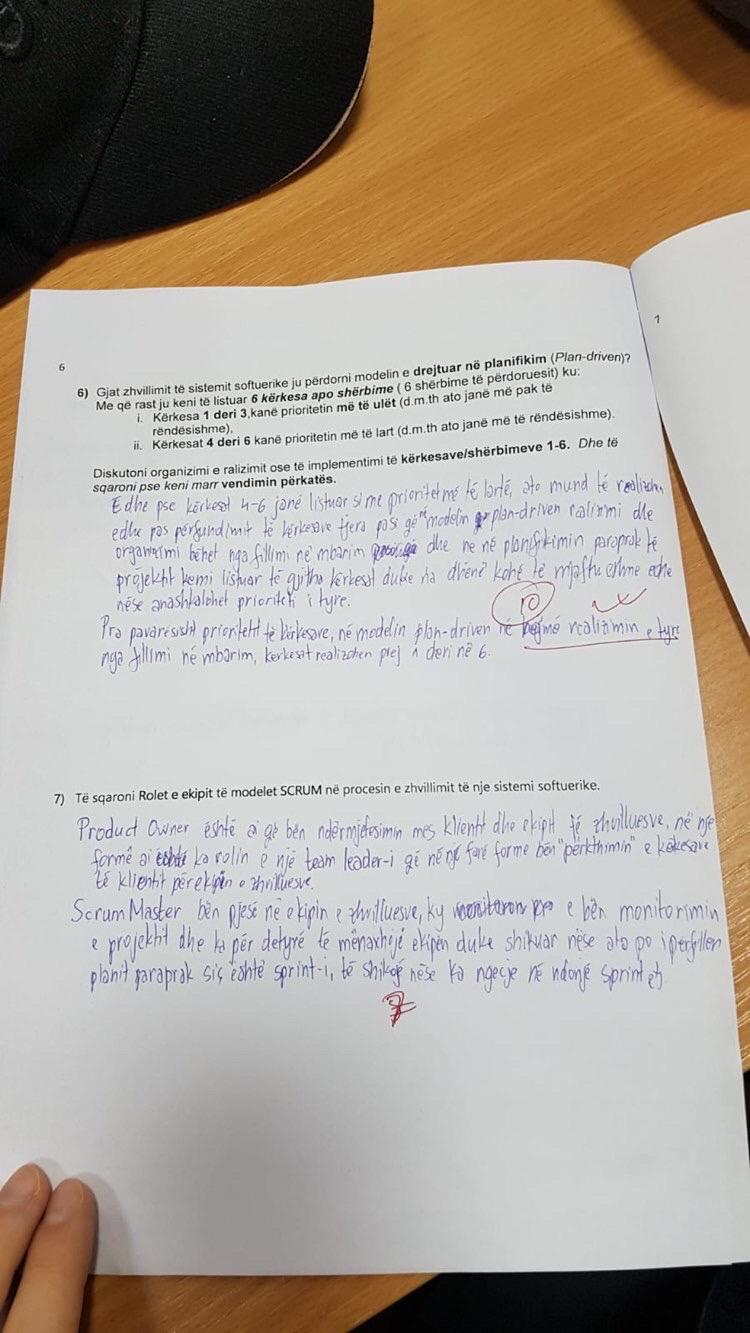 6
1
6) Gjat zhvillimit të sistemit softuerike ju përdorni modelin e drejtuar në planifikim (Plan-driven)?
Me që rast ju keni të listuar 6 kërkesa apo shërbime ( 6 shërbime të përdoruesit) ku:
i. Kërkesa 1 deri 3,kanë prioritetin më të ulët (d.m.th ato janë më pak të
rëndësishme),
ii. Kërkesat 4 deri 6 kanë prioritetin më të lart (d.m.th ato janë më të rëndësishme).
Diskutoni organizimi e ralizimit ose të implementimi të kërkesave/shërbimeve 1-6. Dhe të
sqaroni pse keni marr vendimin përkatës.
Edhe pse kërkesat 4-6 janë listuar si me prioritet më të lartë, ato mund të realizohen
edhe pas përfundimit të kërkesave tjera pasi që në modelin plan-driven realizimi dhe
organizimi bëhet nga fillimi në mbarim dhe ne në planifikimin paraprak të
projektit kemi listuar të gjitha kërkesat duke na dhënë kohë të mjaftueshme edhe
nëse anashkalohet prioriteti i tyre.
10
Pra pavarësisht prioritetit të kërkesave, në modelin plan-driven ne bëjmë realizimin e tyre
nga fillimi në mbarim, kërkesat realizohen prej 1 deri në 6.
7) Të sqaroni Rolet e ekipit të modelet SCRUM në procesin e zhvillimit të nje sistemi softuerike.
Product Owner është ai që bën ndërmjetësimin mes klientit dhe ekipit të zhvilluesve, në një
formë ai ka rolin e një team leader-i që në një farë forme bën "përkthimin" e kërkesave
të klientit për ekipin e zhvilluesve.
Scrum Master bën pjesë në ekipin e zhvilluesve, ky e bën monitorimin
e projektit dhe ka për detyrë të menaxhojë ekipën duke shikuar nëse ato po i përfillen
planit paraprak siç është sprint-i, të shikojë nëse ka ngecje në ndonjë sprint etj.